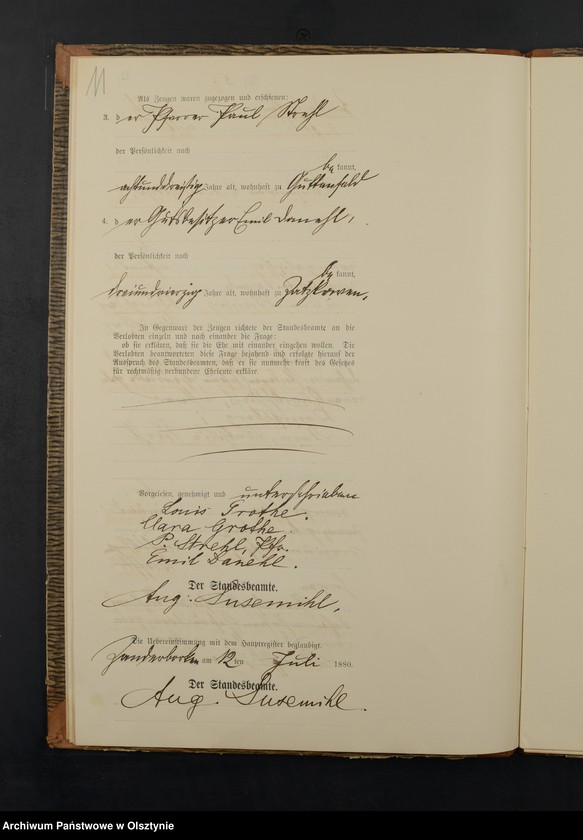 11
Als Zeugen waren zugezogen und erschienen:
3. der Pfarrer Paul Strehl
der Persönlichkeit nach
be kannt,
achtunddreißig Jahre alt, wohnhaft zu Guttenfeld
4. der Gutsbesitzer Emil Danehl,
der Persönlichkeit nach
be kannt,
dreiundvierzig Jahre alt, wohnhaft zu Zatzkowen,
In Gegenwart der Zeugen richtete der Standesbeamte an die
Verlobten einzeln und nach einander die Frage:
ob sie erklären, daß sie die Ehe mit einander eingehen wollen. Die
Verlobten beantworteten diese Frage bejahend und erfolgte hierauf der
Ausspruch des Standesbeamten, daß er sie nunmehr kraft des Gesetzes
für rechtmäßig verbundene Eheleute erkläre.
Vorgelesen, genehmigt und unterschrieben
Louis Grothe.
Clara Grothe
P. Strehl, Pfr.
Emil Danehl.
Der Standesbeamte.
Aug. Susemihl.
Die Uebereinstimmung mit dem Hauptregister beglaubigt.
am 12 ten Juli 1880.
Der Standesbeamte.
Aug. Susemihl.
Archiwum Państwowe w Olsztynie